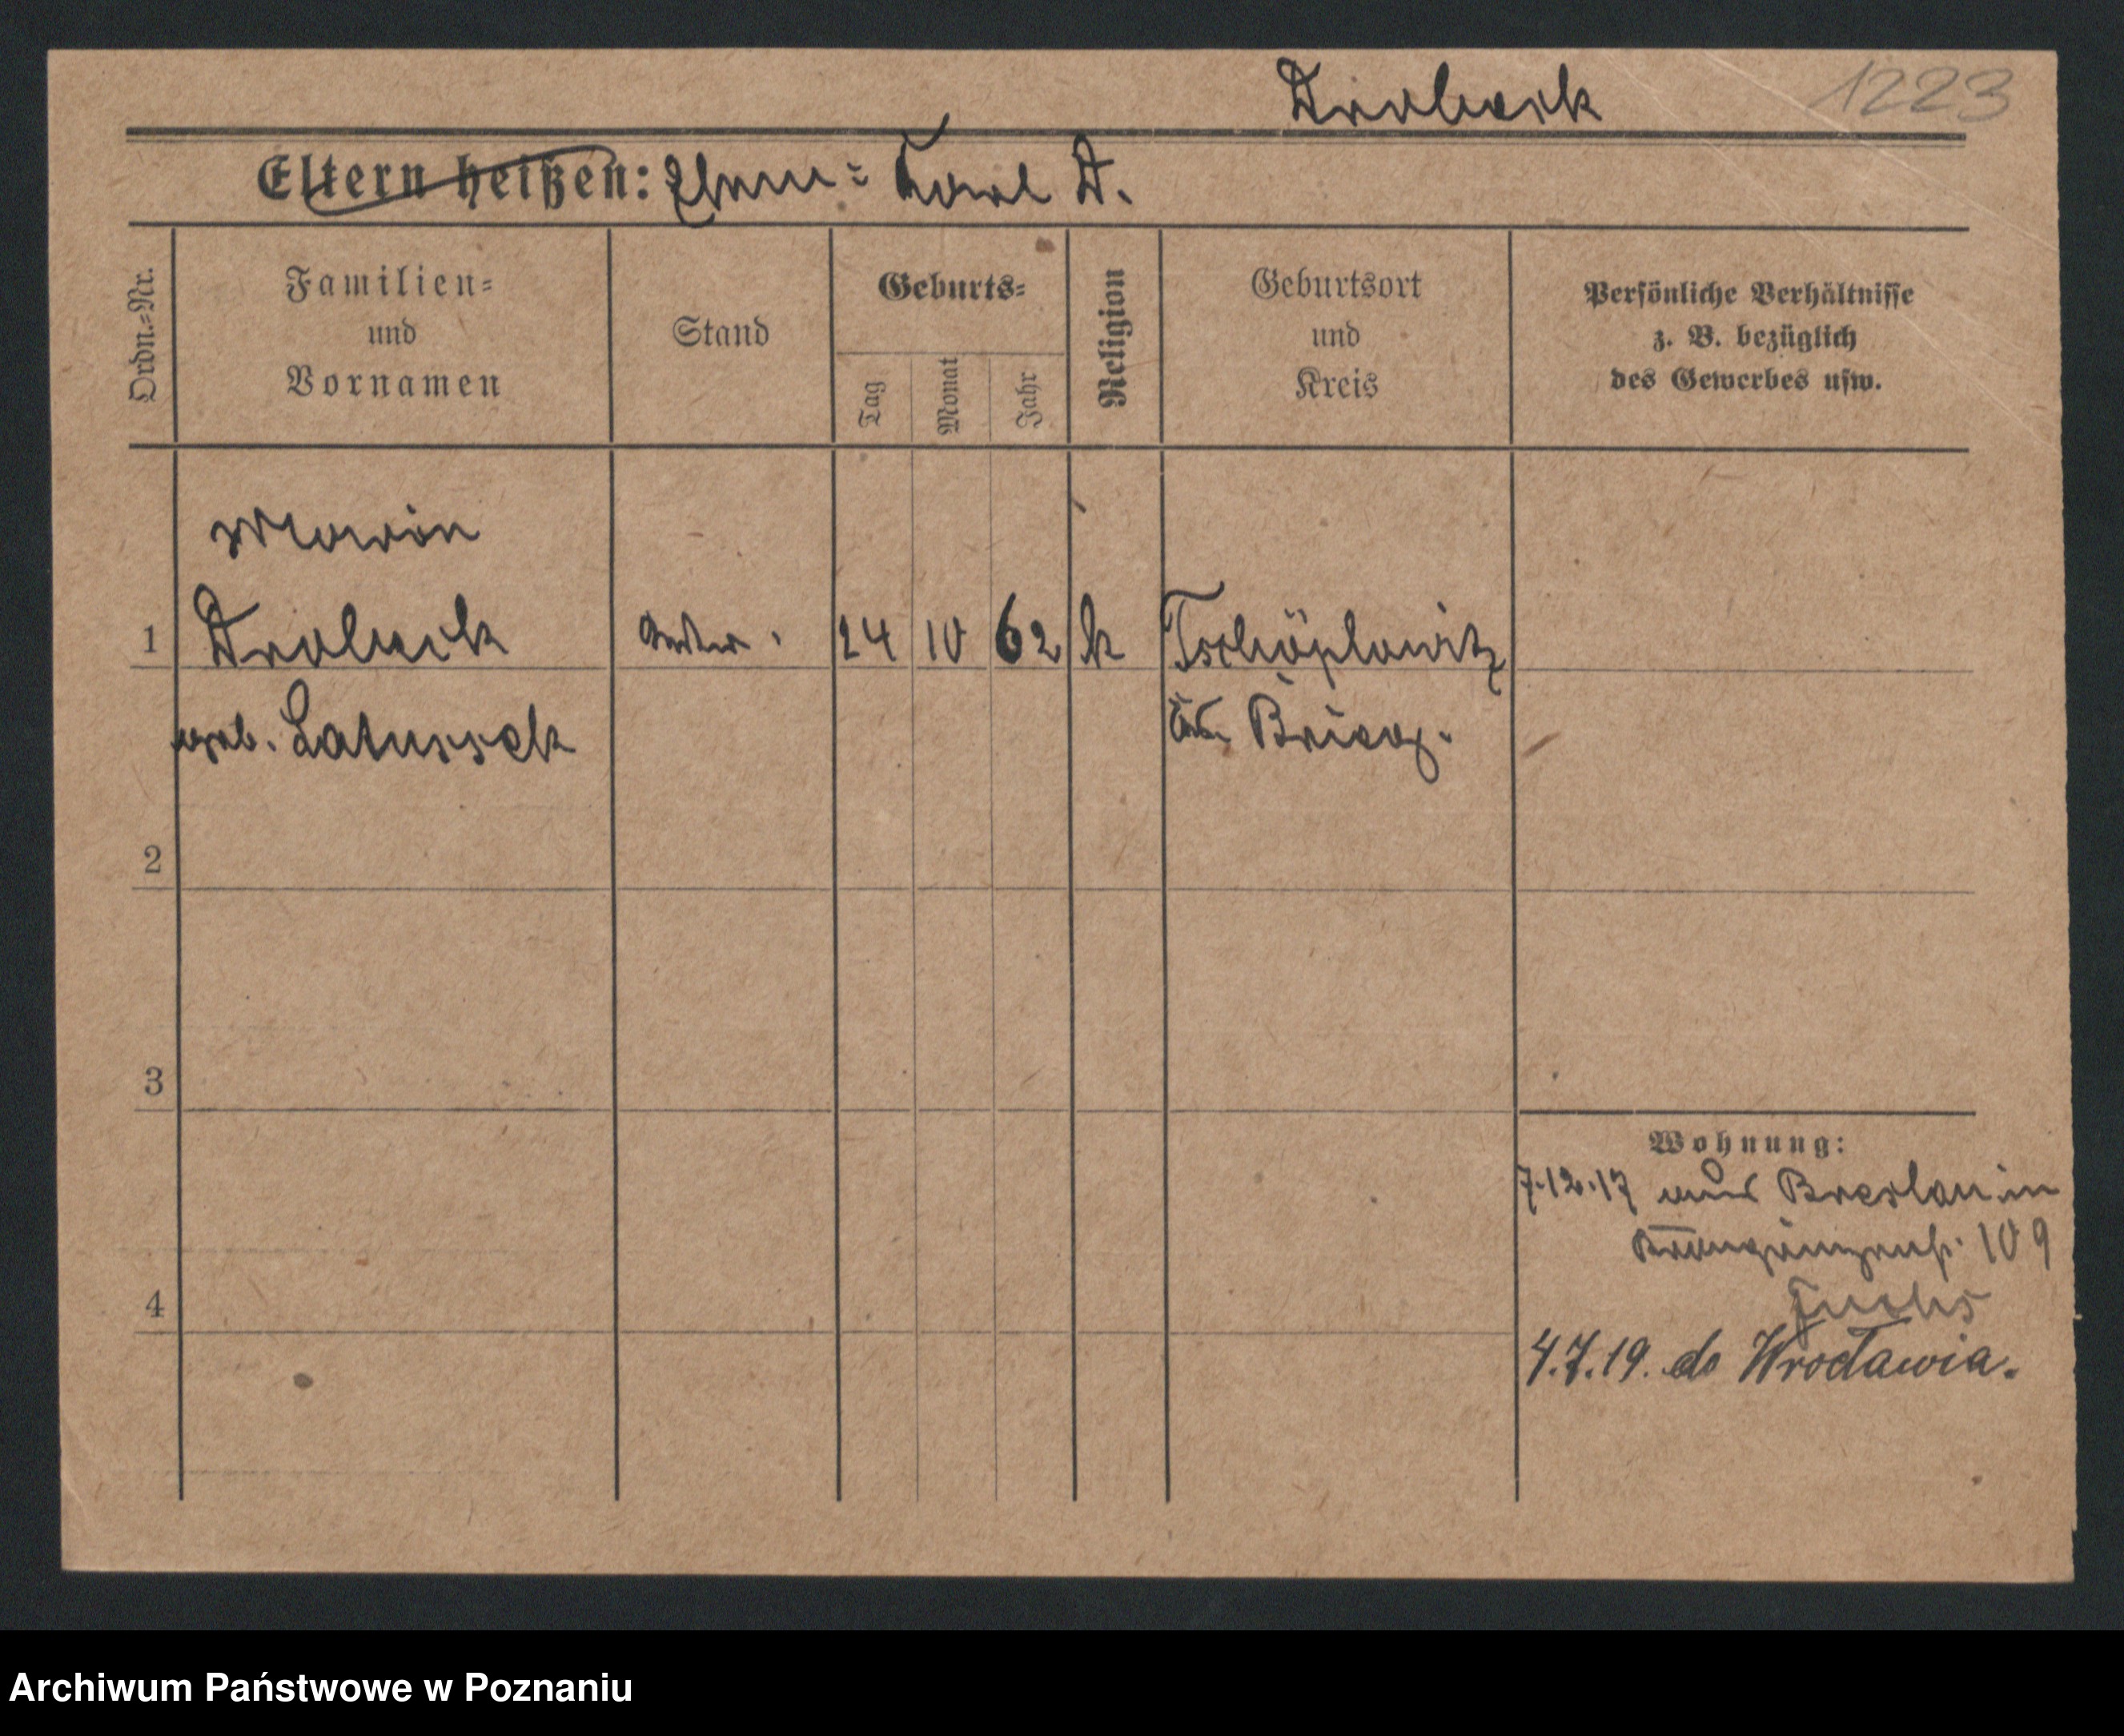 Drobeck
1223
Eltern heißen: Ehem: Karl D.
Ordn.=Nr.
Familien=
und
Vornamen
Stand
Geburts=
Tag
Monat
Jahr
Religion
Geburtsort
und
Kreis
Persönliche Verhältnisse
z. B. bezüglich
des Gewerbes usw.
Maria
1 Drobeck 24 10 62 k Tschöplowitz
geb. Latussek Kr. Brieg.
2
3
Wohnung:
7.12.17 aus Breslau in
109
Fuchs
4
4.7.19. do Wrocławia.
Archiwum Państwowe w Poznaniu